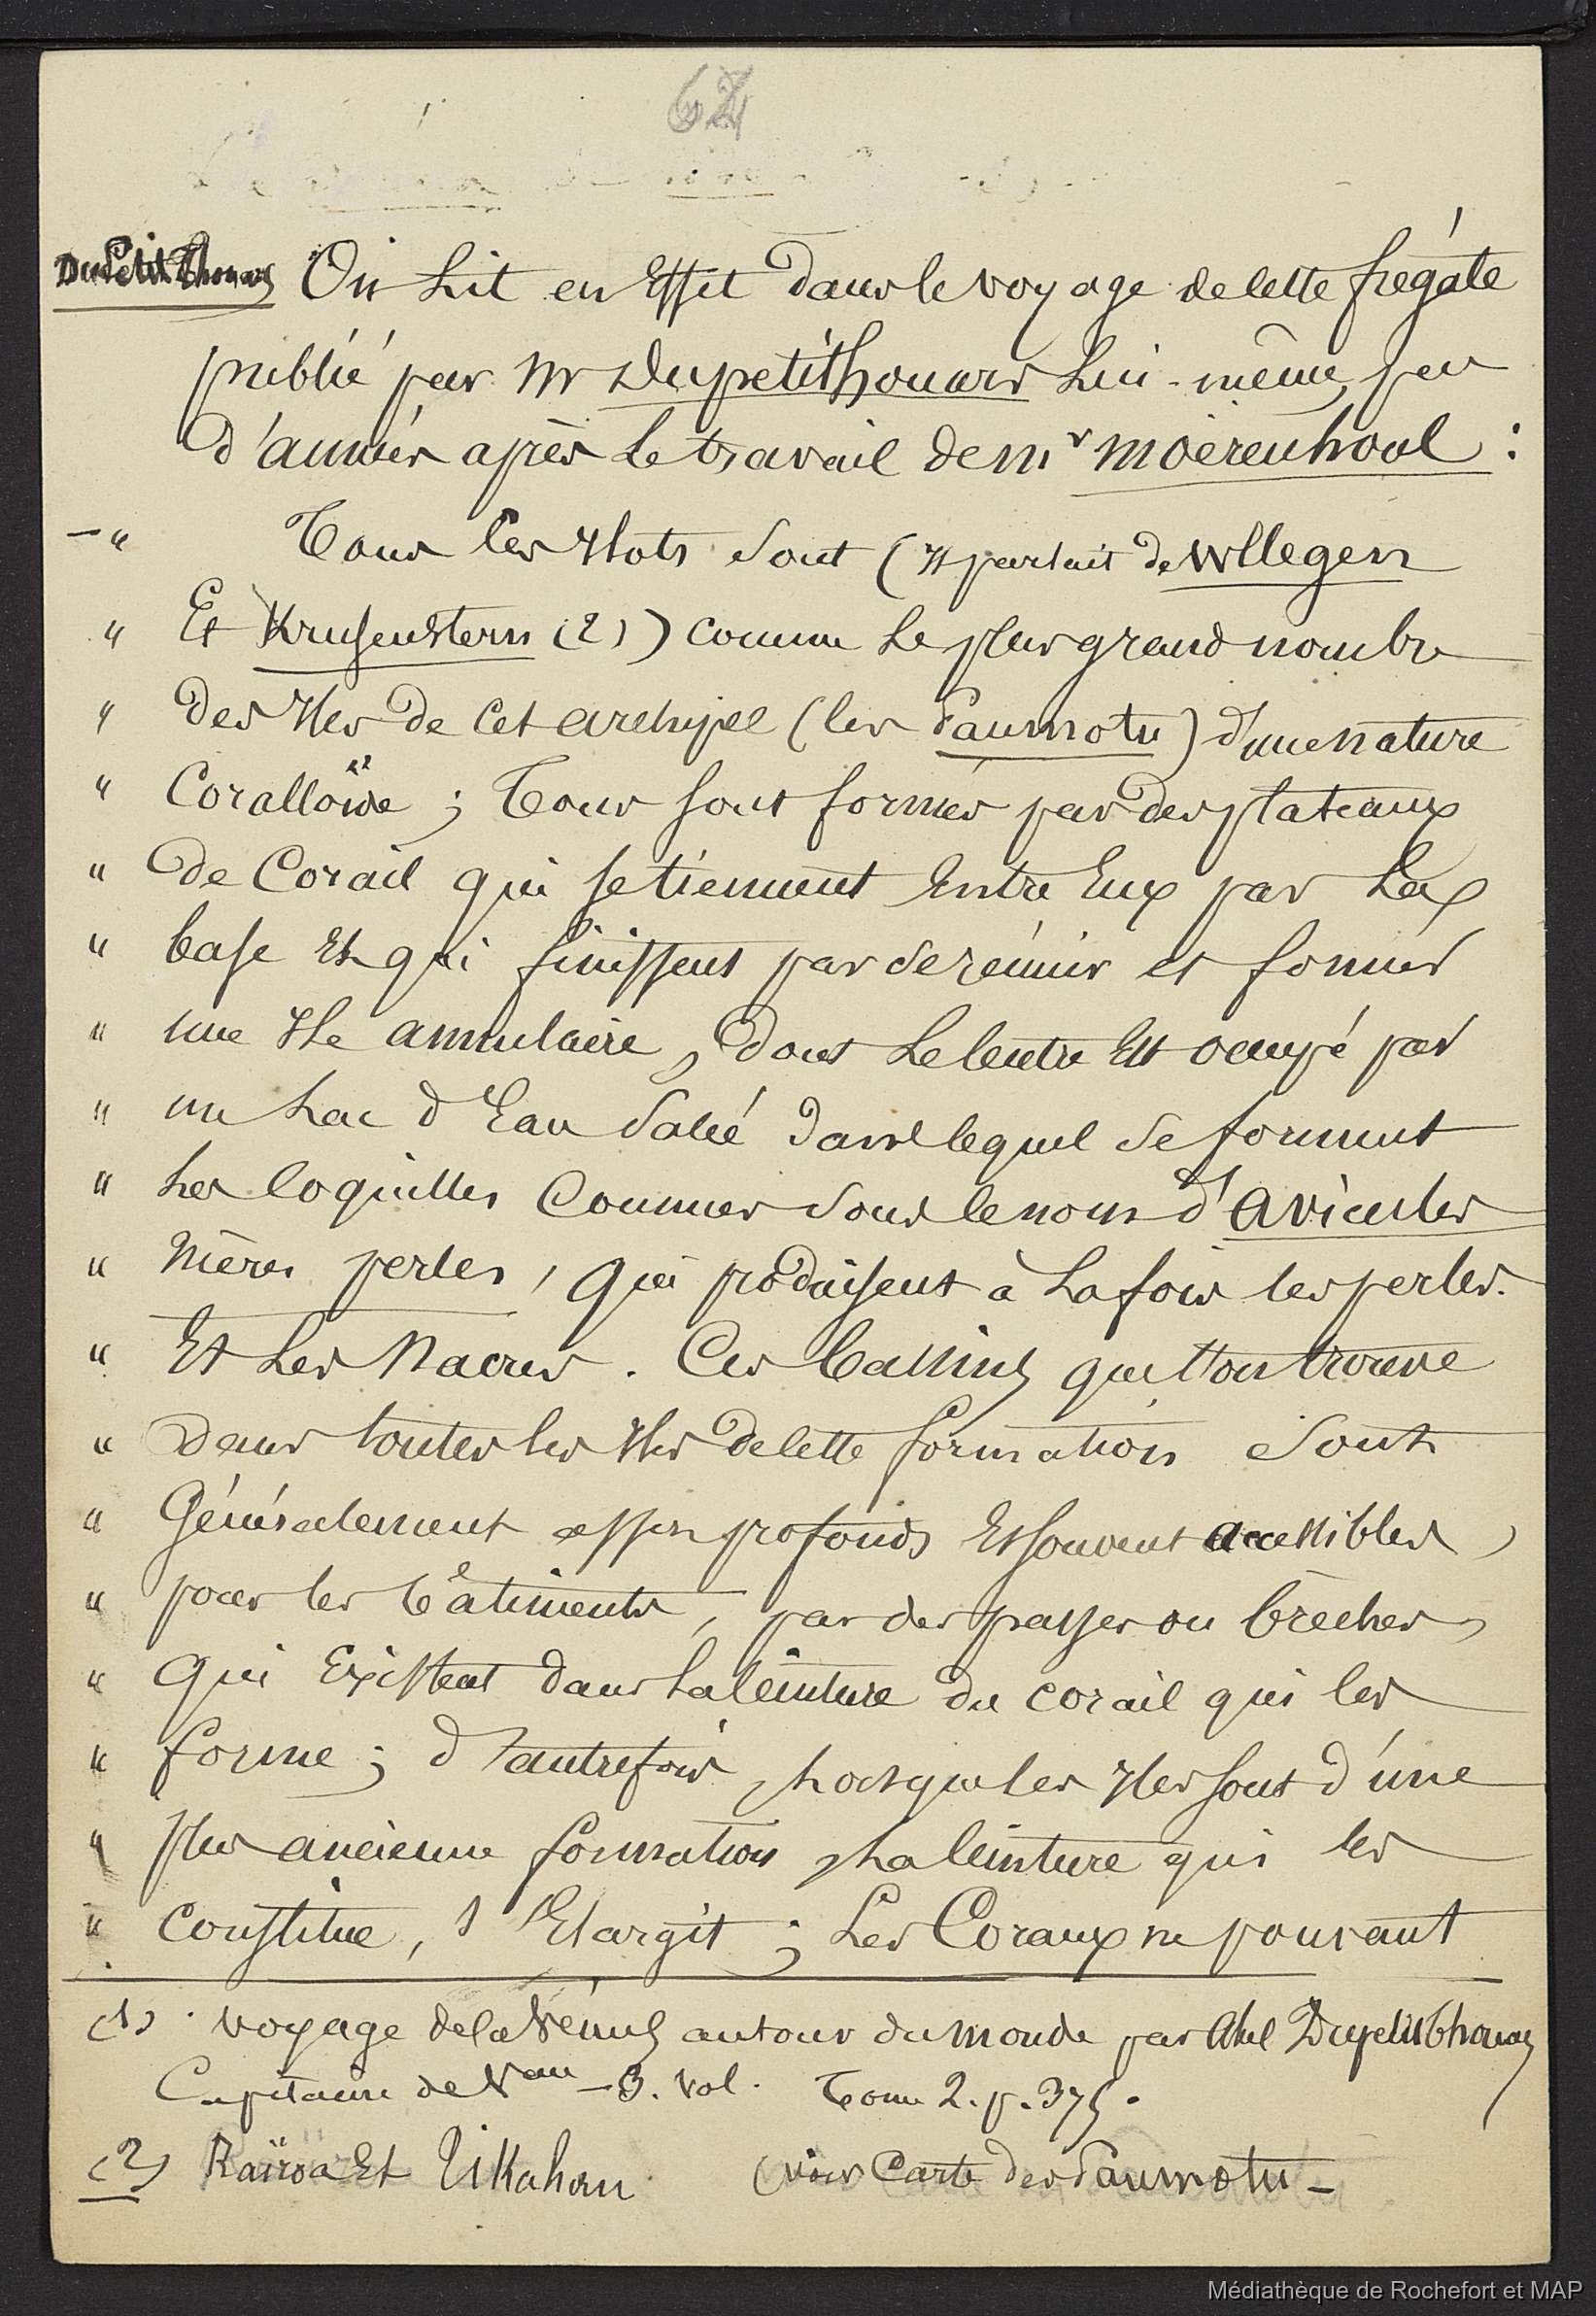 62
Du Petit Thouars On Lit en Effet dans le voyage de cette frégate
publié par Mr Dupetit Thouars Lui-même, peu
d'années après Le travail de Mr Moërenhout :
— " Tous les Ilots sont ( Il parlait de Wllegen
" Et Krusenstern (2) ) comme Le plus grand nombre
" des Iles de Cet archipel (les Paumotu) d'une nature
" Coralloïde ; Tous sont formés par des plateaux
" de Corail qui se tiennent Entre Eux par La
" base Et qui finissent par se réunir et former
" une Ile annulaire, dont Le Centre Est occupé par
" un Lac d'Eau Salée dans lequel se forment
" Les Coquilles Connues sous le nom d'avicules
" Mères perles, qui produisent à La fois les perles.
" Et Les Nacres. Ces bassins que l'on trouve
" Dans toutes les Iles de cette formation sont
" Généralement assez profonds Et souvent accessibles,
" pour les bâtiments, par des passes ou brèches,
" qui Existent dans La Ceinture du corail qui les
" forme ; d'autrefois, Lorsque les Iles sont d'une
" plus ancienne formation, La Ceinture qui les
" Constitue, s'Elargit ; Les Coraux ne pouvant
(1) . Voyage de la Vénus autour du Monde par Abel Dupetit Thouars
Capitaine de Veau — 3. vol. Tome 2. p. 375.
(2) Raïroa Et Tikahau (voir Carte des Paumotu —
Médiathèque de Rochefort et MAP